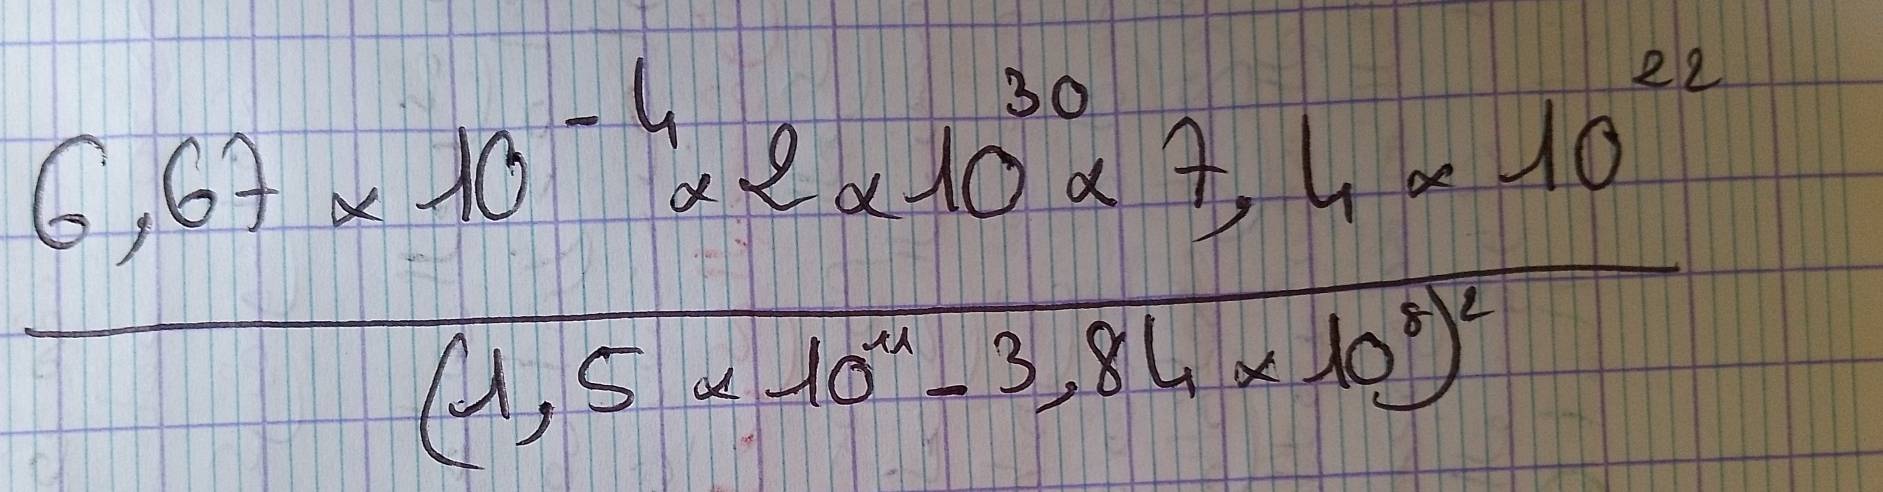 6,67 × 10^-4 × 2 × 10^30 × 7,4 × 10^22
(1,5 × 10^11 - 3,84 × 10^8)^2